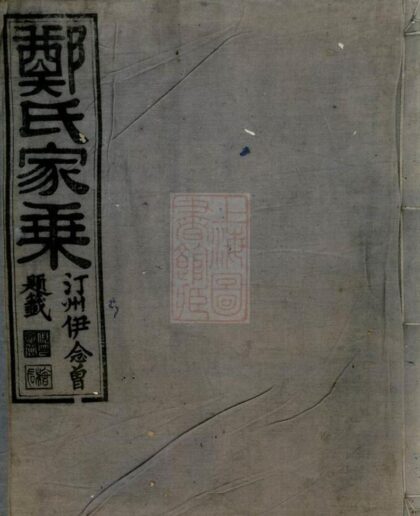 鄭氏家乘
汀州伊念曾
題籤
上海圖
書館藏